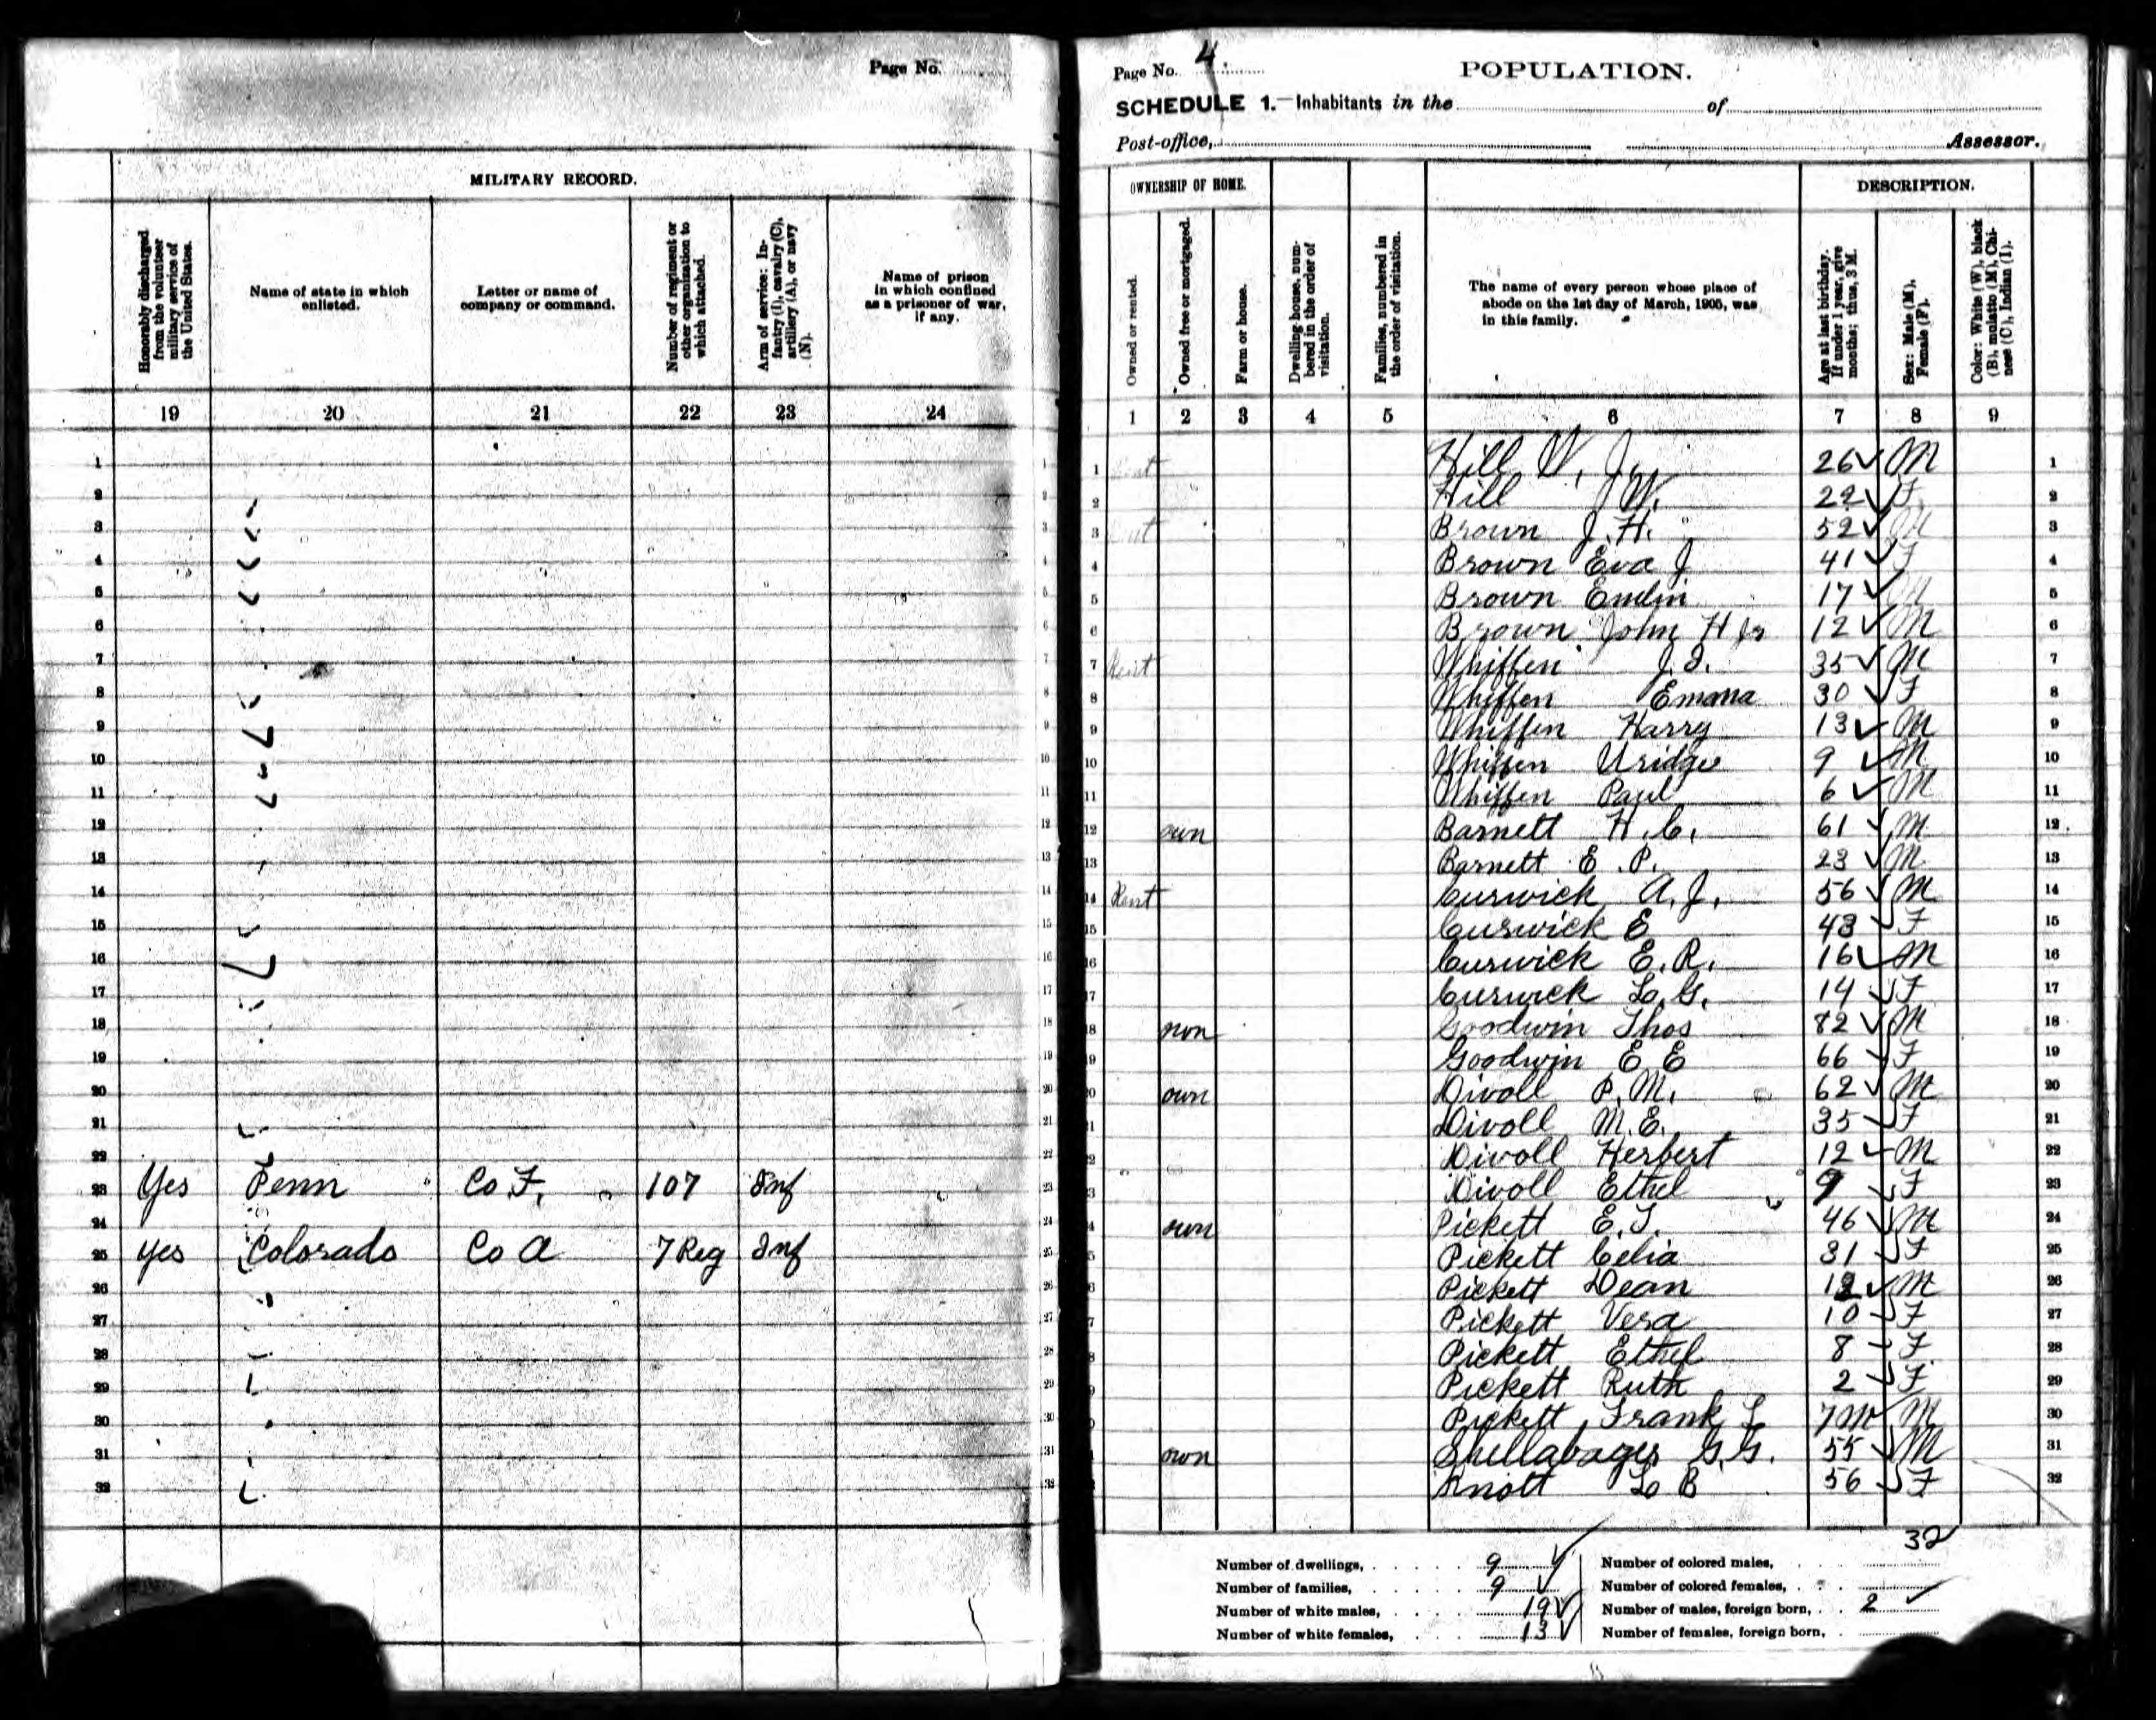 Page No.
MILITARY RECORD.
Honorably discharged from the volunteer military service of the United States.
Name of state in which enlisted.
Letter or name of company or command.
Number of regiment or other organization to which attached.
Arm of service: Infantry (I), cavalry (C), artillery (A), or navy (N).
Name of prison in which confined as a prisoner of war, if any.
19 20 21 22 23 24
1
2
3
4
5
6
7
8
9
10
11
12
13
14
15
16
17
18
19
20
21
22
23 Yes Penn Co F. 107 Inf
24
25 Yes Colorado Co A 7 Reg Inf
26
27
28
29
30
31
32
Page No. 4.
POPULATION.
SCHEDULE 1.—Inhabitants in the of
Post-office, Assessor.
OWNERSHIP OF HOME.
DESCRIPTION.
Owned or rented.
Owned free or mortgaged.
Farm or house.
Dwelling-house, numbered in the order of visitation.
Families, numbered in the order of visitation.
The name of every person whose place of abode on the 1st day of March, 1905, was in this family.
Age at last birthday. If under 1 year, give months; thus, 3 M.
Sex: Male (M), Female (F).
Color: White (W), black (B), mulatto (M), Chinese (C), Indian (I).
1 2 3 4 5 6 7 8 9
1 Hill W. J. 26 M 1
2 Hill J W. 22 F 2
3 Brown J. H. 52 M 3
4 Brown Eva J 41 F 4
5 Brown Emlin 17 M 5
6 Brown John H Jr 12 M 6
7 Rent Whiffen J. 35 M 7
8 Whiffen Emma 30 F 8
9 Whiffen Harry 13 M 9
10 Whiffen Uridge 9 M 10
11 Whiffen Paul 6 M 11
12 own Barnett H. C. 61 M 12
13 Barnett E. P. 23 M 13
14 Rent Curwick A. J. 56 M 14
15 Curwick E 43 F 15
16 Curwick E. R. 16 M 16
17 Curwick L. G. 14 F 17
18 own Goodwin Thos 82 M 18
19 Goodwin E E 66 F 19
20 own Divoll P. M. 62 M 20
21 Divoll M. E. 35 F 21
22 Divoll Herbert 12 M 22
23 Divoll Ethel 9 F 23
24 own Pickett E. T. 46 M 24
25 Pickett Celia 31 F 25
26 Pickett Dean 12 M 26
27 Pickett Vera 10 F 27
28 Pickett Ethel 8 F 28
29 Pickett Ruth 2 F 29
30 Pickett Frank L 7M M 30
31 own Shellabager G. G. 55 M 31
32 Knott L B 56 F 32
32
Number of dwellings, 9
Number of families, 9
Number of white males, 19
Number of white females, 13
Number of colored males,
Number of colored females,
Number of males, foreign born, 2
Number of females, foreign born,